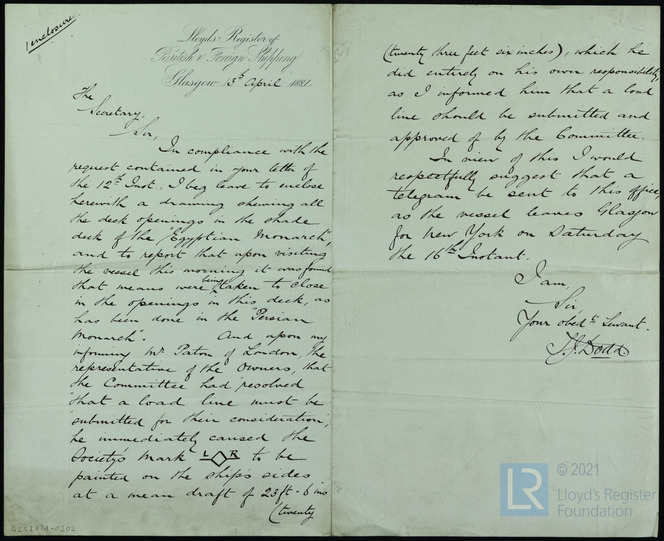 1 enclosure
Lloyd's Register of
British & Foreign Shipping
Glasgow 13th April 1881
The
Secretary,
Sir,
In compliance with the
request contained in your letter of
the 12th Inst. I beg leave to enclose
herewith a drawing shewing all
the deck openings in the shade
deck of the "Egyptian Monarch",
and to report that upon visiting
the vessel this morning it was found
that means were being taken to close
in the openings in this deck, as
has been done in the "Persian
Monarch". And upon my
informing Mr Paton of London, the
representative of the Owners, that
the Committee had resolved
"that a load line must be
submitted for their consideration",
he immediately caused the
Society's Mark L R to be
painted on the ship's sides
at a mean draft of 23 ft. 6 ins
(twenty
(twenty three feet six inches), which he
did entirely on his own responsibility
as I informed him that a load
line should be submitted and
approved of by the Committee.
In view of this I would
respectfully suggest that a
telegram be sent to this office,
as the vessel leaves Glasgow
for New York on Saturday
the 16th Instant.
I am,
Sir,
Your obedt. Servant.
J. J. Dodd
GLS1874-0202
LR
© 2021
Lloyd's Register
Foundation